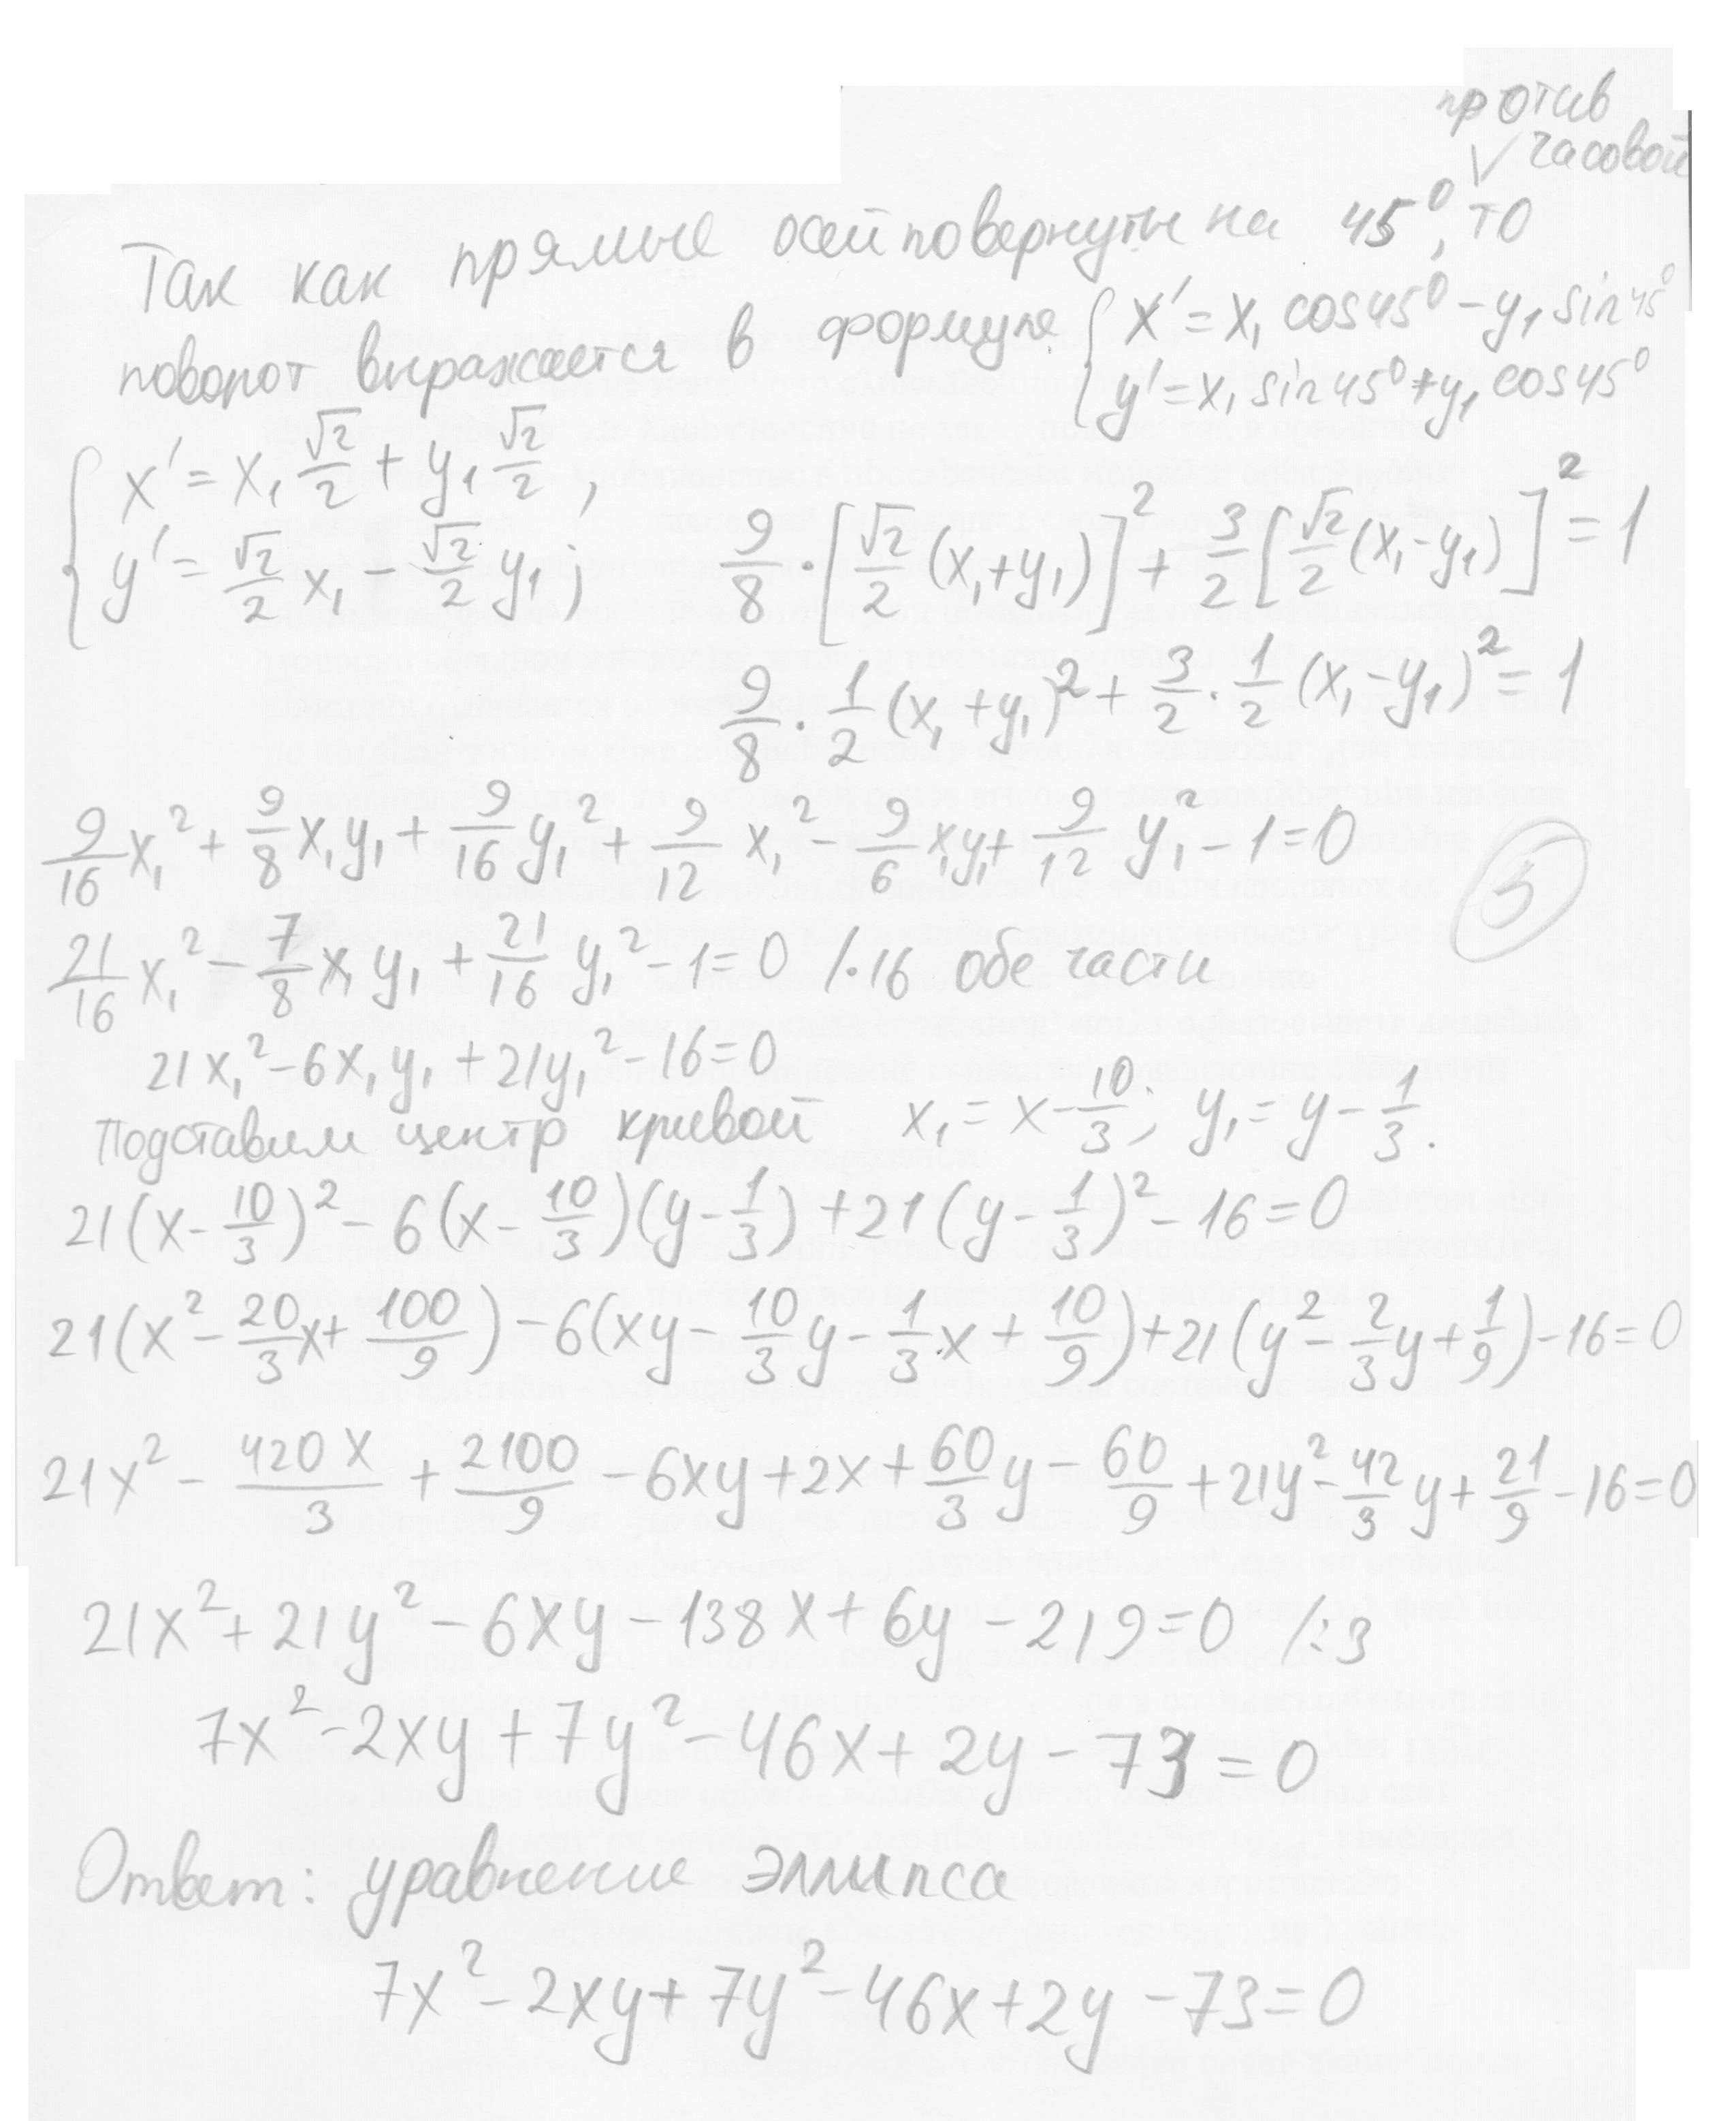 против
√ часовой
Так как прямые осей повернуты на 45°, то
поворот выражается в формуле: { x' = x₁ cos45° - y₁ sin45°
y' = x₁ sin45° + y₁ cos45°
{ x' = x₁ √2/2 + y₁ √2/2,
y' = √2/2 x₁ - √2/2 y₁;
9/8 · [√2/2 (x₁+y₁)]² + 3/2 [√2/2 (x₁-y₁)]² = 1
9/8 · 1/2 (x₁+y₁)² + 3/2 · 1/2 (x₁-y₁)² = 1
9/16 x₁² + 9/8 x₁y₁ + 9/16 y₁² + 9/12 x₁² - 9/6 x₁y₁ + 9/12 y₁² - 1 = 0
21/16 x₁² - 7/8 x₁y₁ + 21/16 y₁² - 1 = 0 /·16 обе части
5
21x₁² - 6x₁y₁ + 21y₁² - 16 = 0
Подставим центр кривой x₁ = x - 10/3; y₁ = y - 1/3.
21(x - 10/3)² - 6(x - 10/3)(y - 1/3) + 21(y - 1/3)² - 16 = 0
21(x² - 20/3 x + 100/9) - 6(xy - 10/3 y - 1/3 x + 10/9) + 21(y² - 2/3 y + 1/9) - 16 = 0
21x² - 420x/3 + 2100/9 - 6xy + 2x + 60/3 y - 60/9 + 21y² - 42/3 y + 21/9 - 16 = 0
21x² + 21y² - 6xy - 138x + 6y - 219 = 0 /:3
7x² - 2xy + 7y² - 46x + 2y - 73 = 0
Ответ: уравнение эллипса
7x² - 2xy + 7y² - 46x + 2y - 73 = 0